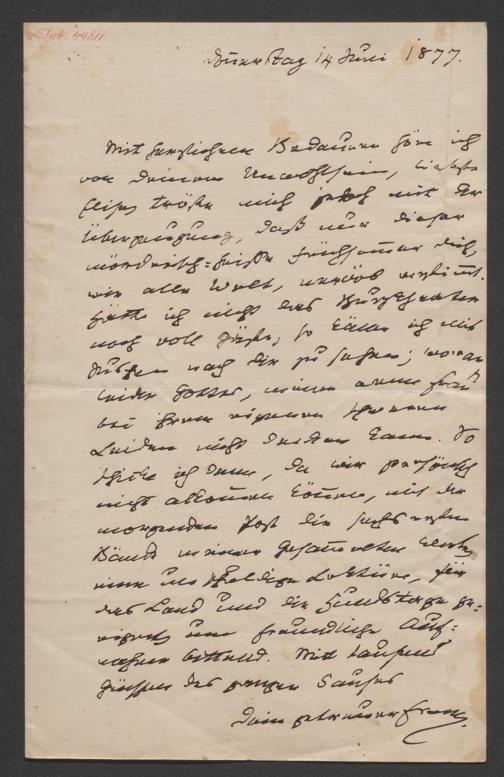 Donnerstag 14 Juni 1877.
Mit herzlichem Bedauern höre ich
von Deinem Unwohlsein, liebste
tröste mich jedoch mit der
Überzeugung, daß nur dieser
mörderisch-heiße Frühsommer Dich,
wie alle Welt, nervös verstimt.
Hätte ich nicht das Haus
noch voll Gäste, so käme ich mit
nach Dir zu sehen; woran
leider Gottes, meine arme Frau
bei ihrem eigenen schweren
Leiden nicht denken kann. So
schicke ich denn, da wir persönlich
nicht abkommen können, mit der
morgenden Post die sechs ersten
Bände meiner Gesammelten Werke,
eine unschuldige Lektüre, für
das Land und die Hundstage ge-
eignet, um freundliche Auf-
nahme bittend. Mit tausend
Grüßen des ganzen Hauses
Dein getreuer Franz.